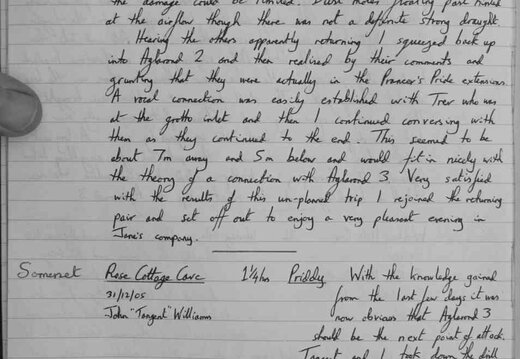 the damage could be limited. Dust motes floating past hinted
at the airflow though there was not a definite strong draught.
Hearing the others apparently returning I squeezed back up
into Aglarond 2 and then realised by their comments and
grunting that they were actually in the Prancer's Pride extensions.
A vocal connection was easily established with Trev who was
at the grotto inlet and then I continued conversing with
them as they continued to the end. This seemed to be
about 7m away and 5m below and would fit in nicely with
the theory of a connection with Aglarond 3. Very satisfied
with the results of this un-planned trip I rejoined the returning
pair and set off out to enjoy a very pleasant evening in
Jane's company.
Somerset Rose Cottage Cave 1¼hrs Priddy
31/12/05
John "Tangent" Williams
With the knowledge gained
from the last few days it was
now obvious that Aglarond 3
should be the next point of attack.
Tangent and I took down the drill